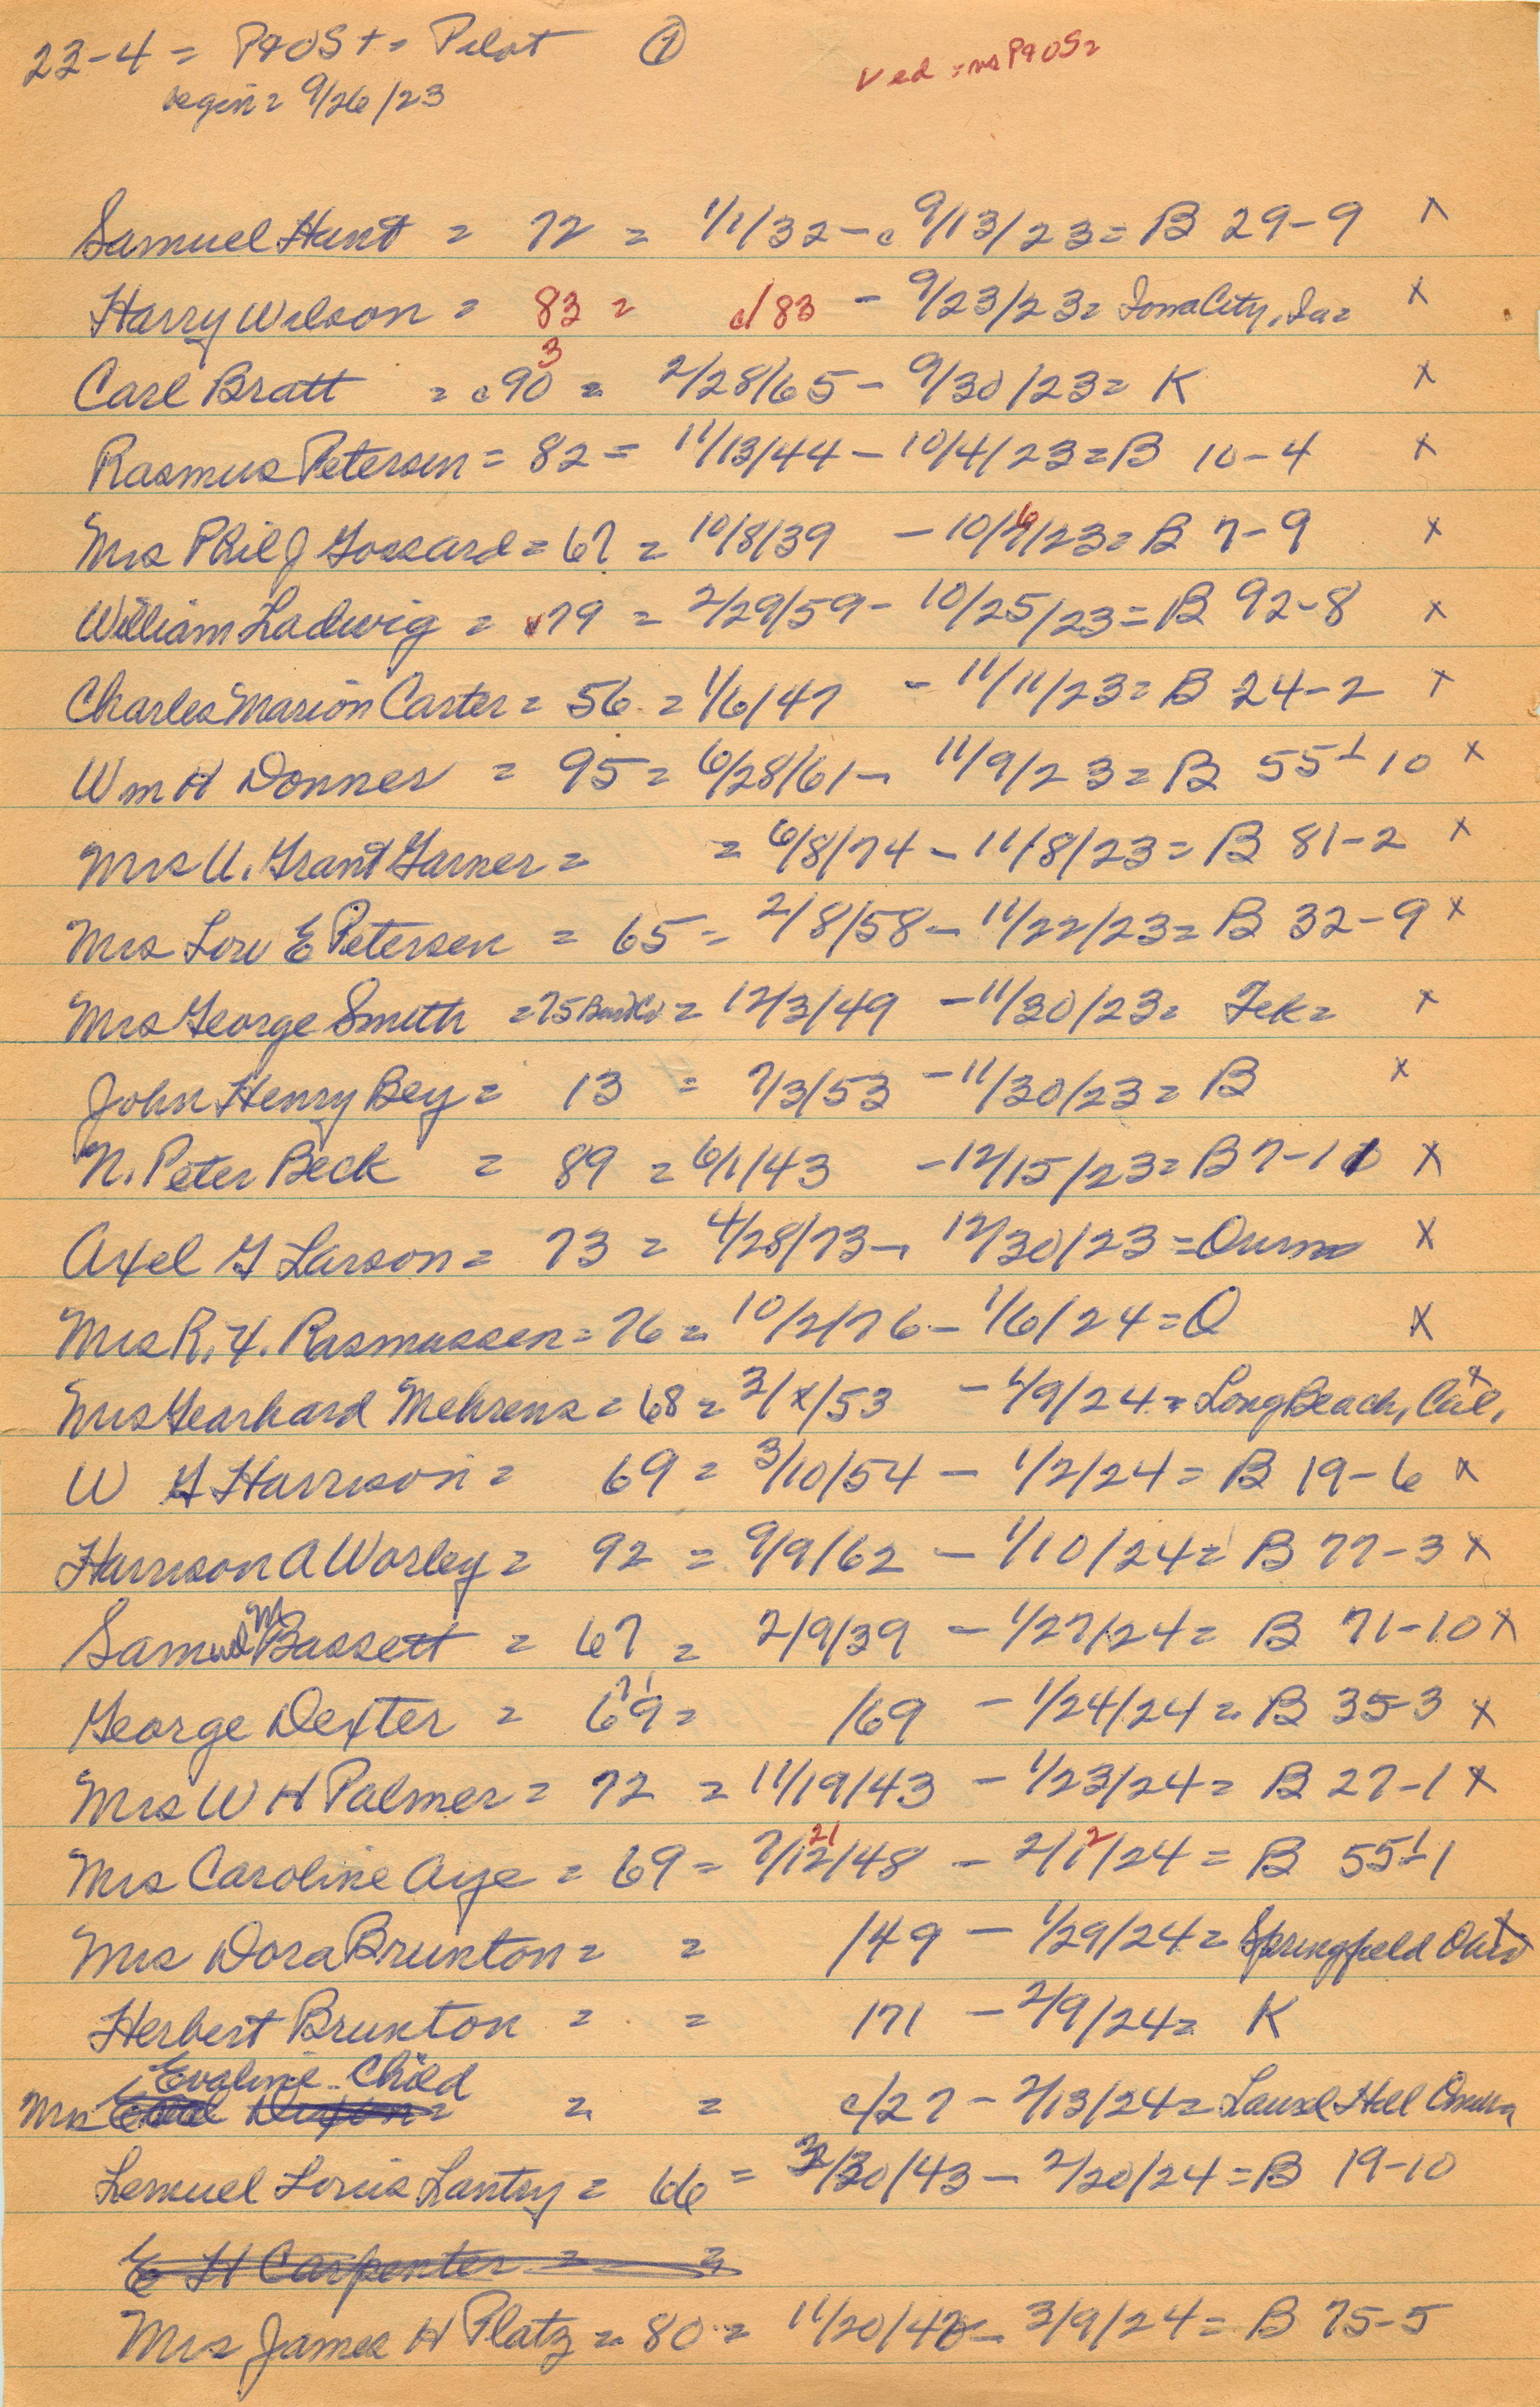 22-4 = P&OS += Pilot ①
Ved = ms P&OS =
begin = 9/26/23
Samuel Hunt = 72 = 1/1/32 - c 9/13/23 = B 29-9 x
Harry Wilson = 83 = c/83 - 9/23/23 = Iowa City, Ia = x
3
Carl Bratt = c90 = 2/28/65 - 9/30/23 = K x
Rasmus Petersen = 82 = 11/13/44 - 10/4/23 = B 10-4 x
6
Mrs Phil J Gossard = 67 = 10/8/39 - 10/7/23 = B 7-9 x
William Ladwig = 79 = 2/29/59 - 10/25/23 = B 92-8 x
Charles Marion Carter = 56 = 1/6/47 - 11/11/23 = B 24-2 x
Wm H Donner = 95 = 6/28/61 - 11/9/23 = B 55 1/2 10 x
Mrs U. Grant Garner = = 6/8/74 - 11/8/23 = B 81-2 x
Mrs Low E Petersen = 65 = 2/8/58 - 11/22/23 = B 32-9 x
Mrs George Smith = 75 Burt Co = 12/3/49 - 11/30/23 = Tek = x
John Henry Bey = 13 = 7/3/53 - 11/30/23 = B x
N. Peter Beck = 89 = 6/1/43 - 12/15/23 = B 7-10 x
Axel G Larson = 73 = 4/28/73 - 12/30/23 = Oum x
Mrs R. H. Rasmussen = 76 = 10/2/76 - 1/6/24 = O x
Mrs Gearhard Mehrens = 68 = 3/x/53 - 1/9/24 = Long Beach, Cal. x
W G Harrison = 69 = 3/10/54 - 1/2/24 = B 19-6 x
Harrison A Worley = 92 = 9/9/62 - 1/10/24 = B 77-3 x
Samuel M Bassett = 67 = 2/9/39 - 1/27/24 = B 71-10 x
71
George Dexter = 69 = /69 - 1/24/24 = B 35-3 x
Mrs W H Palmer = 72 = 11/19/43 - 1/23/24 = B 27-1 x
21 2
Mrs Caroline Aye = 69 = 7/12/48 - 2/1/24 = B 55 1/2 1
Mrs Dora Brunton = = /49 - 1/29/24 = Springfield Ohio x
Herbert Brunton = = /71 - 2/9/24 = K
Evaline Child
Mrs = = c/27 - 2/13/24 = Laurel Hill Omaha
Lemuel Louis Lantry = 66 = 3/30/43 - 2/20/24 = B 19-10
E H Carpenter = =
Mrs James H Platz = 80 = 11/20/48 - 3/9/24 = B 75-5